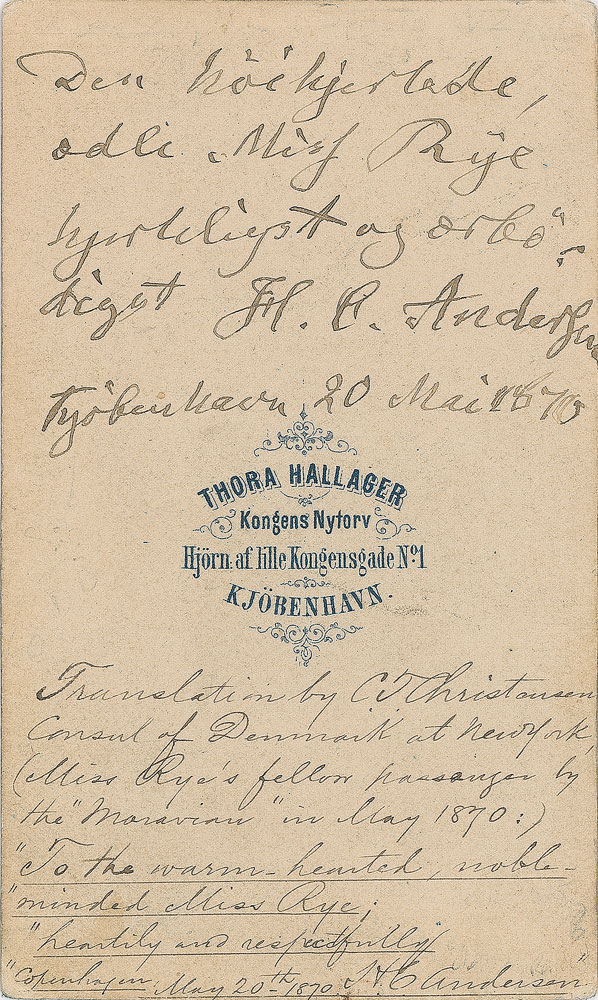 Den höihjertede,
ædle Miss Rye
hjerteligst og ærbö-
digst H. C. Andersen
Kjöbenhavn 20 Mai 1870
THORA HALLAGER
Kongens Nytorv
Hjörn. af lille Kongensgade No. 1
KJÖBENHAVN.
Translation by C T Christensen
Consul of Denmark at New York
(Miss Rye's fellow passenger by
the "Moravian" in May 1870:)
"To the warm-hearted, noble-
"minded Miss Rye;
"heartily and respectfully
"Copenhagen, May 20th 1870 H C Andersen"